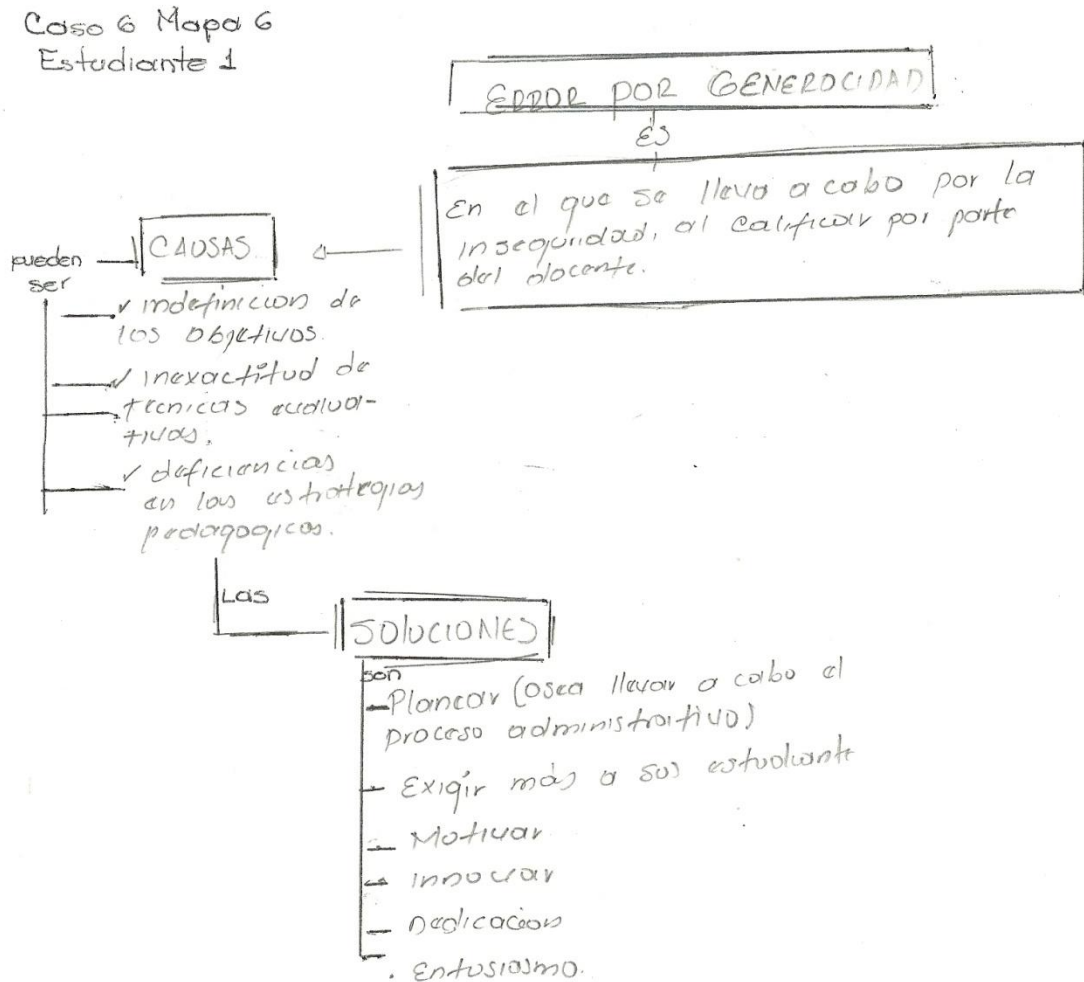 Caso 6 Mapa 6
Estudiante 1
ERROR POR GENEROCIDAD
ES
En el que se lleva a cabo por la
inseguridad, al calificar por parte
del docente.
CAUSAS
pueden
ser
✓ indefinicion de
los objetivos.
✓ inexactitud de
tecnicas evalua-
tivas.
✓ deficiencias
en las estrategias
pedagogicas.
Las
SOLUCIONES
son
- Planear (osea llevar a cabo el
proceso administrativo)
- Exigir más a sus estudiante
- Motivar
- Innovar
- Dedicacion
. Entusiasmo.